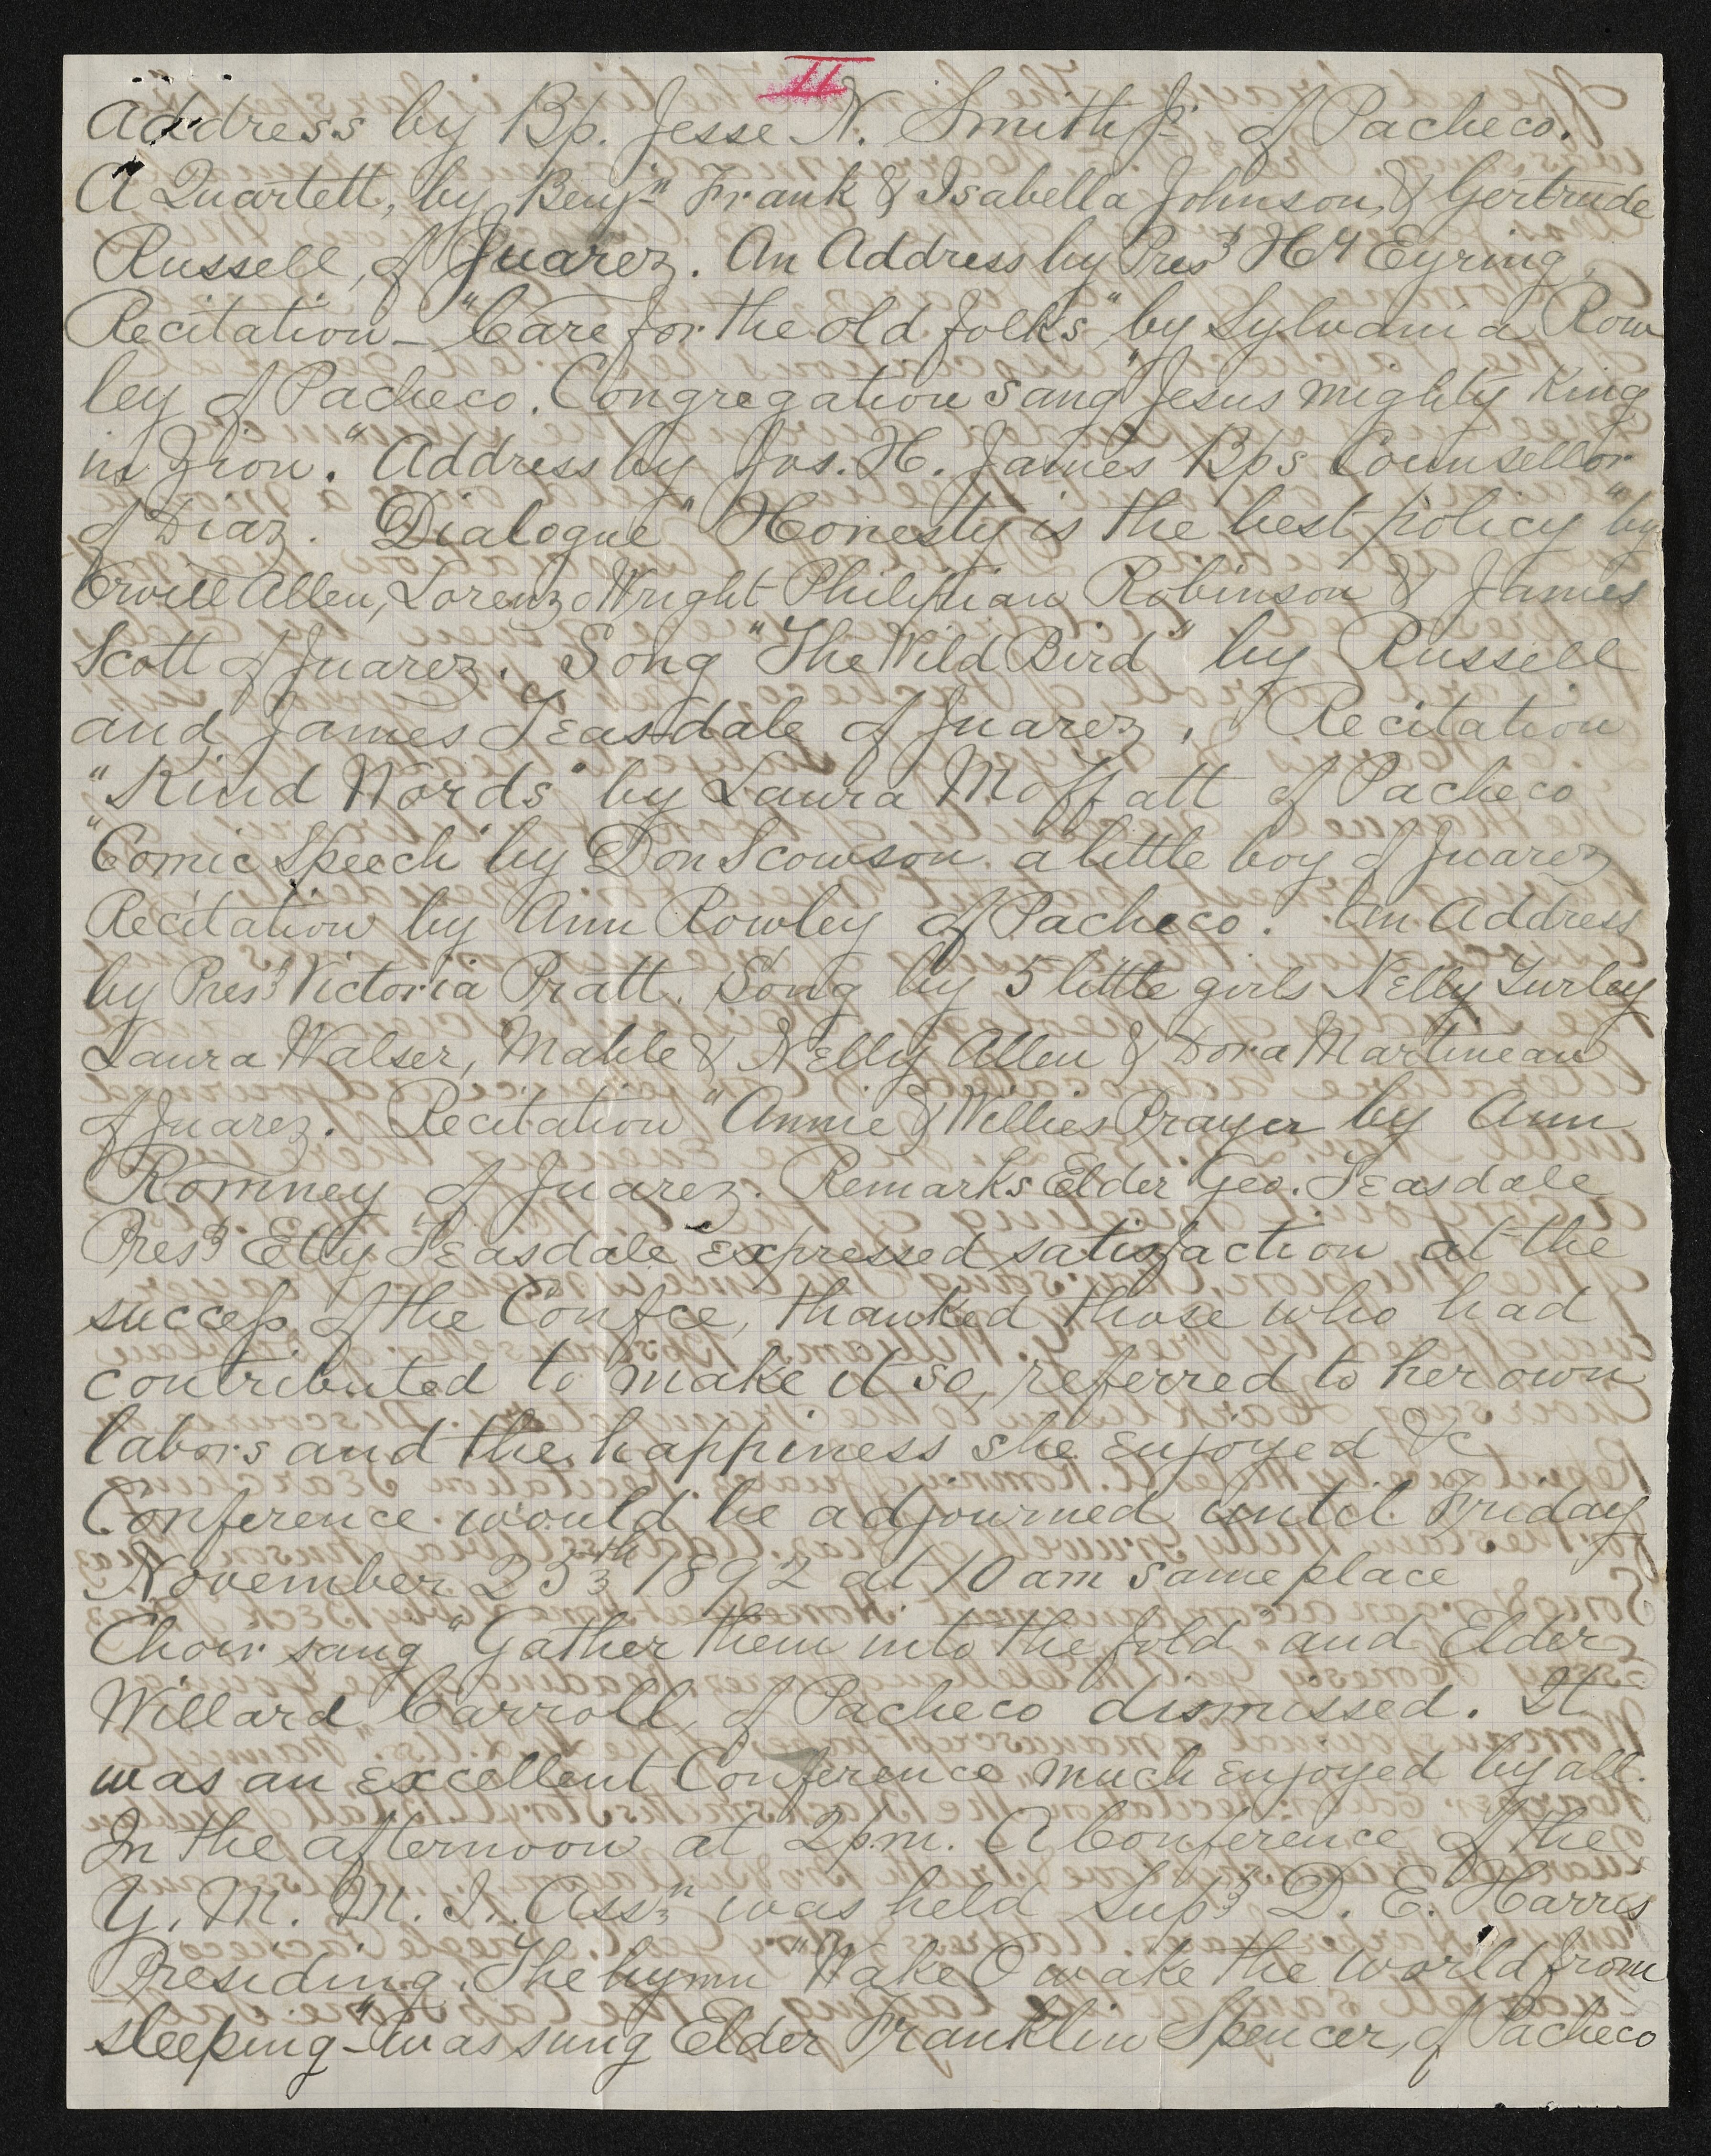 II
Address by Bp. Jesse N. Smith Jr of Pacheco.
A Quartett, by Benjn Frank & Isabella Johnson, & Gertrude
Russell, of Juarez. An Address by Prest Hy Eyring,
Recitation – "Care for the old folks" by Sylvania Row
ley of Pacheco. Congregation sang "Jesus mighty King
in Zion." Address by Jos. H. James Bps Counsellor
of Diaz. Dialogue "Honesty is the best policy" by
Orvill Allen, Lorenzo Wright Robinson & James
Scott of Juarez. Song "The Wild Bird" by Russell
and James Teasdale of Juarez, Recitation
"Kind Words" by Laura Moffatt of Pacheco
"Comic Speech" by Don Scowson a little boy of Juarez
Recitation by Ann Rowley of Pacheco. An Address
by Prest Victoria Pratt. Song by 5 little girls Nelly Turley
Laura Walser, Mable & Nelly Allen & Dora Martineau
of Juarez. Recitation "Annie & Willies Prayer by Ann
Romney of Juarez. Remarks Elder Geo. Teasdale
Prest Etty Teasdale expressed satisfaction at the
success of the Confce, thanked those who had
contributed to make it so, referred to her own
labors and the happiness she enjoyed &c
Conference would be adjourned until Friday
November 25th 1892 at 10 am same place
Choir sang "Gather them into the fold" and Elder
Willard Carroll, of Pacheco dismissed. It
was an excellent Conference much enjoyed by all.
In the afternoon at 2 p.m. A Conference of the
Y. M. M. I. Assn was held Supt D. E. Harris
Presiding. The hymn "Wake O wake the world from
sleeping –" was sung Elder Franklin Spencer, of Pacheco